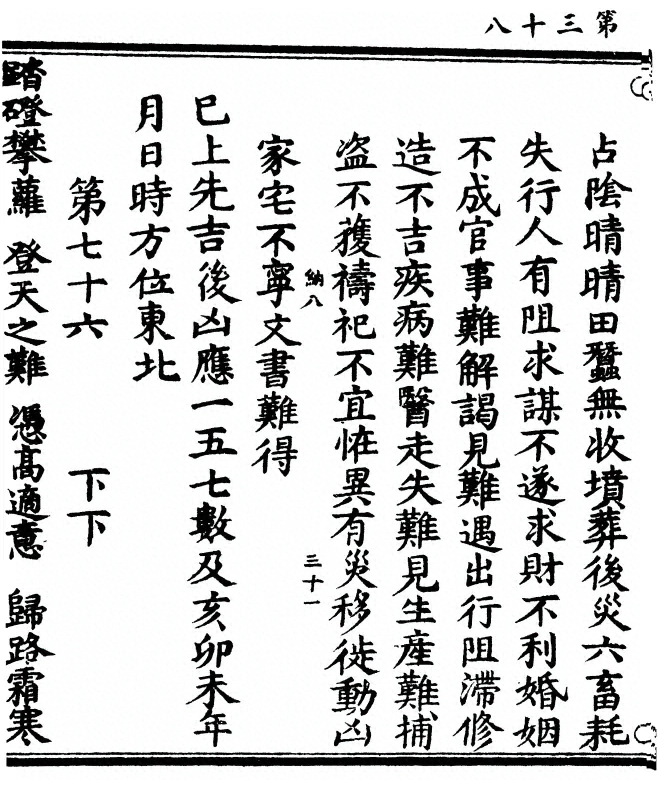 第三十八
占陰晴晴田蠶無收墳葬後災六畜耗
失行人有阻求謀不遂求財不利婚姻
不成官事難解謁見難遇出行阻滯修
造不吉疾病難醫走失難見生產難捕
盗不獲禱祀不宜恠異有災移徙動凶
納八
三十一
家宅不寧文書難得
巳上先吉後凶應一五七數及亥卯未年
月日時方位東北
第七十六 下下
踏磴攀蘿 登天之難 憑高適意 歸路霜寒